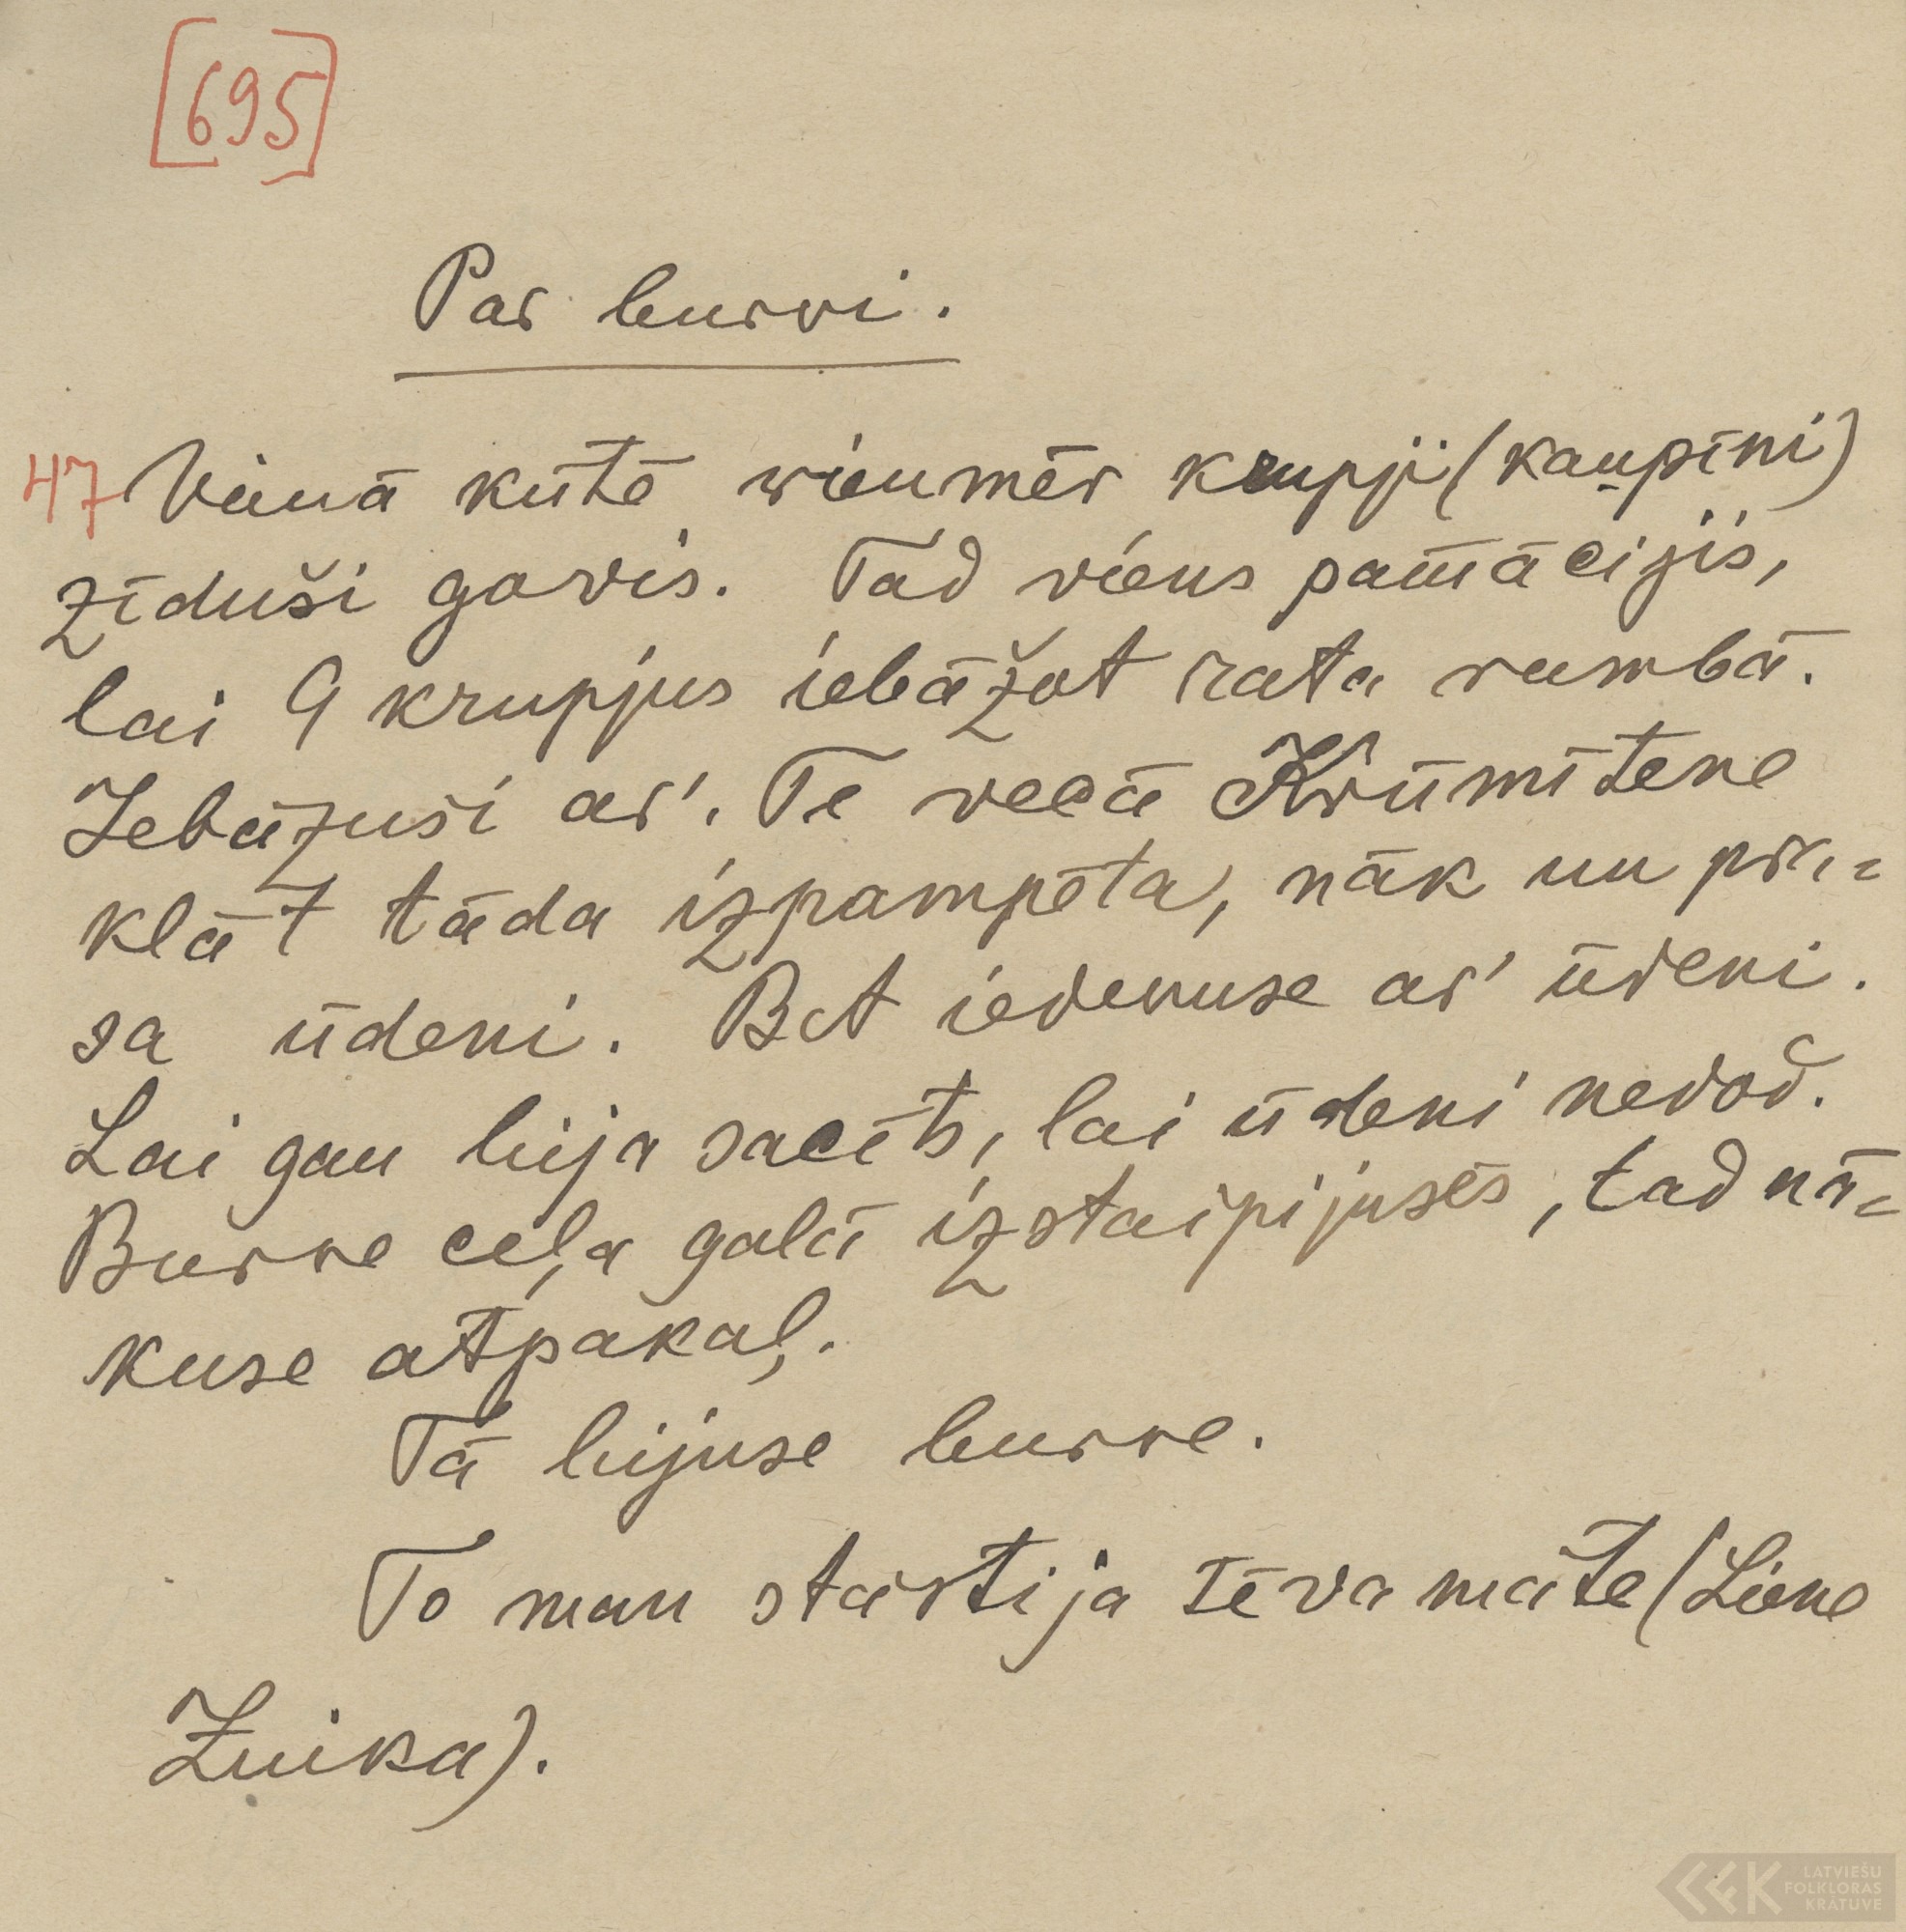 [695]
Par burvi.
47 Vienā kūtē vienmēr krupji (kaupiņi)
zīduši govis. Tad viens pamācijis,
lai 9 krupjus iebāžot rata rumbā.
Iebāzuši ar'. Te vecā Krūmītene
klāt tāda izpampēta, nāk un pra=
sa ūdeni. Bet iedevuse ar' ūdeni.
Lai gan bija sacīts, lai ūdeni nedod.
Burve ceļa galā izstaipijusēs, tad nā=
kuse atpakaļ.
Tā bijuse burve.
To man stāstija tēva māte (Liene
Zuika).
LATVIEŠU
FOLKLORAS
KRĀTUVE